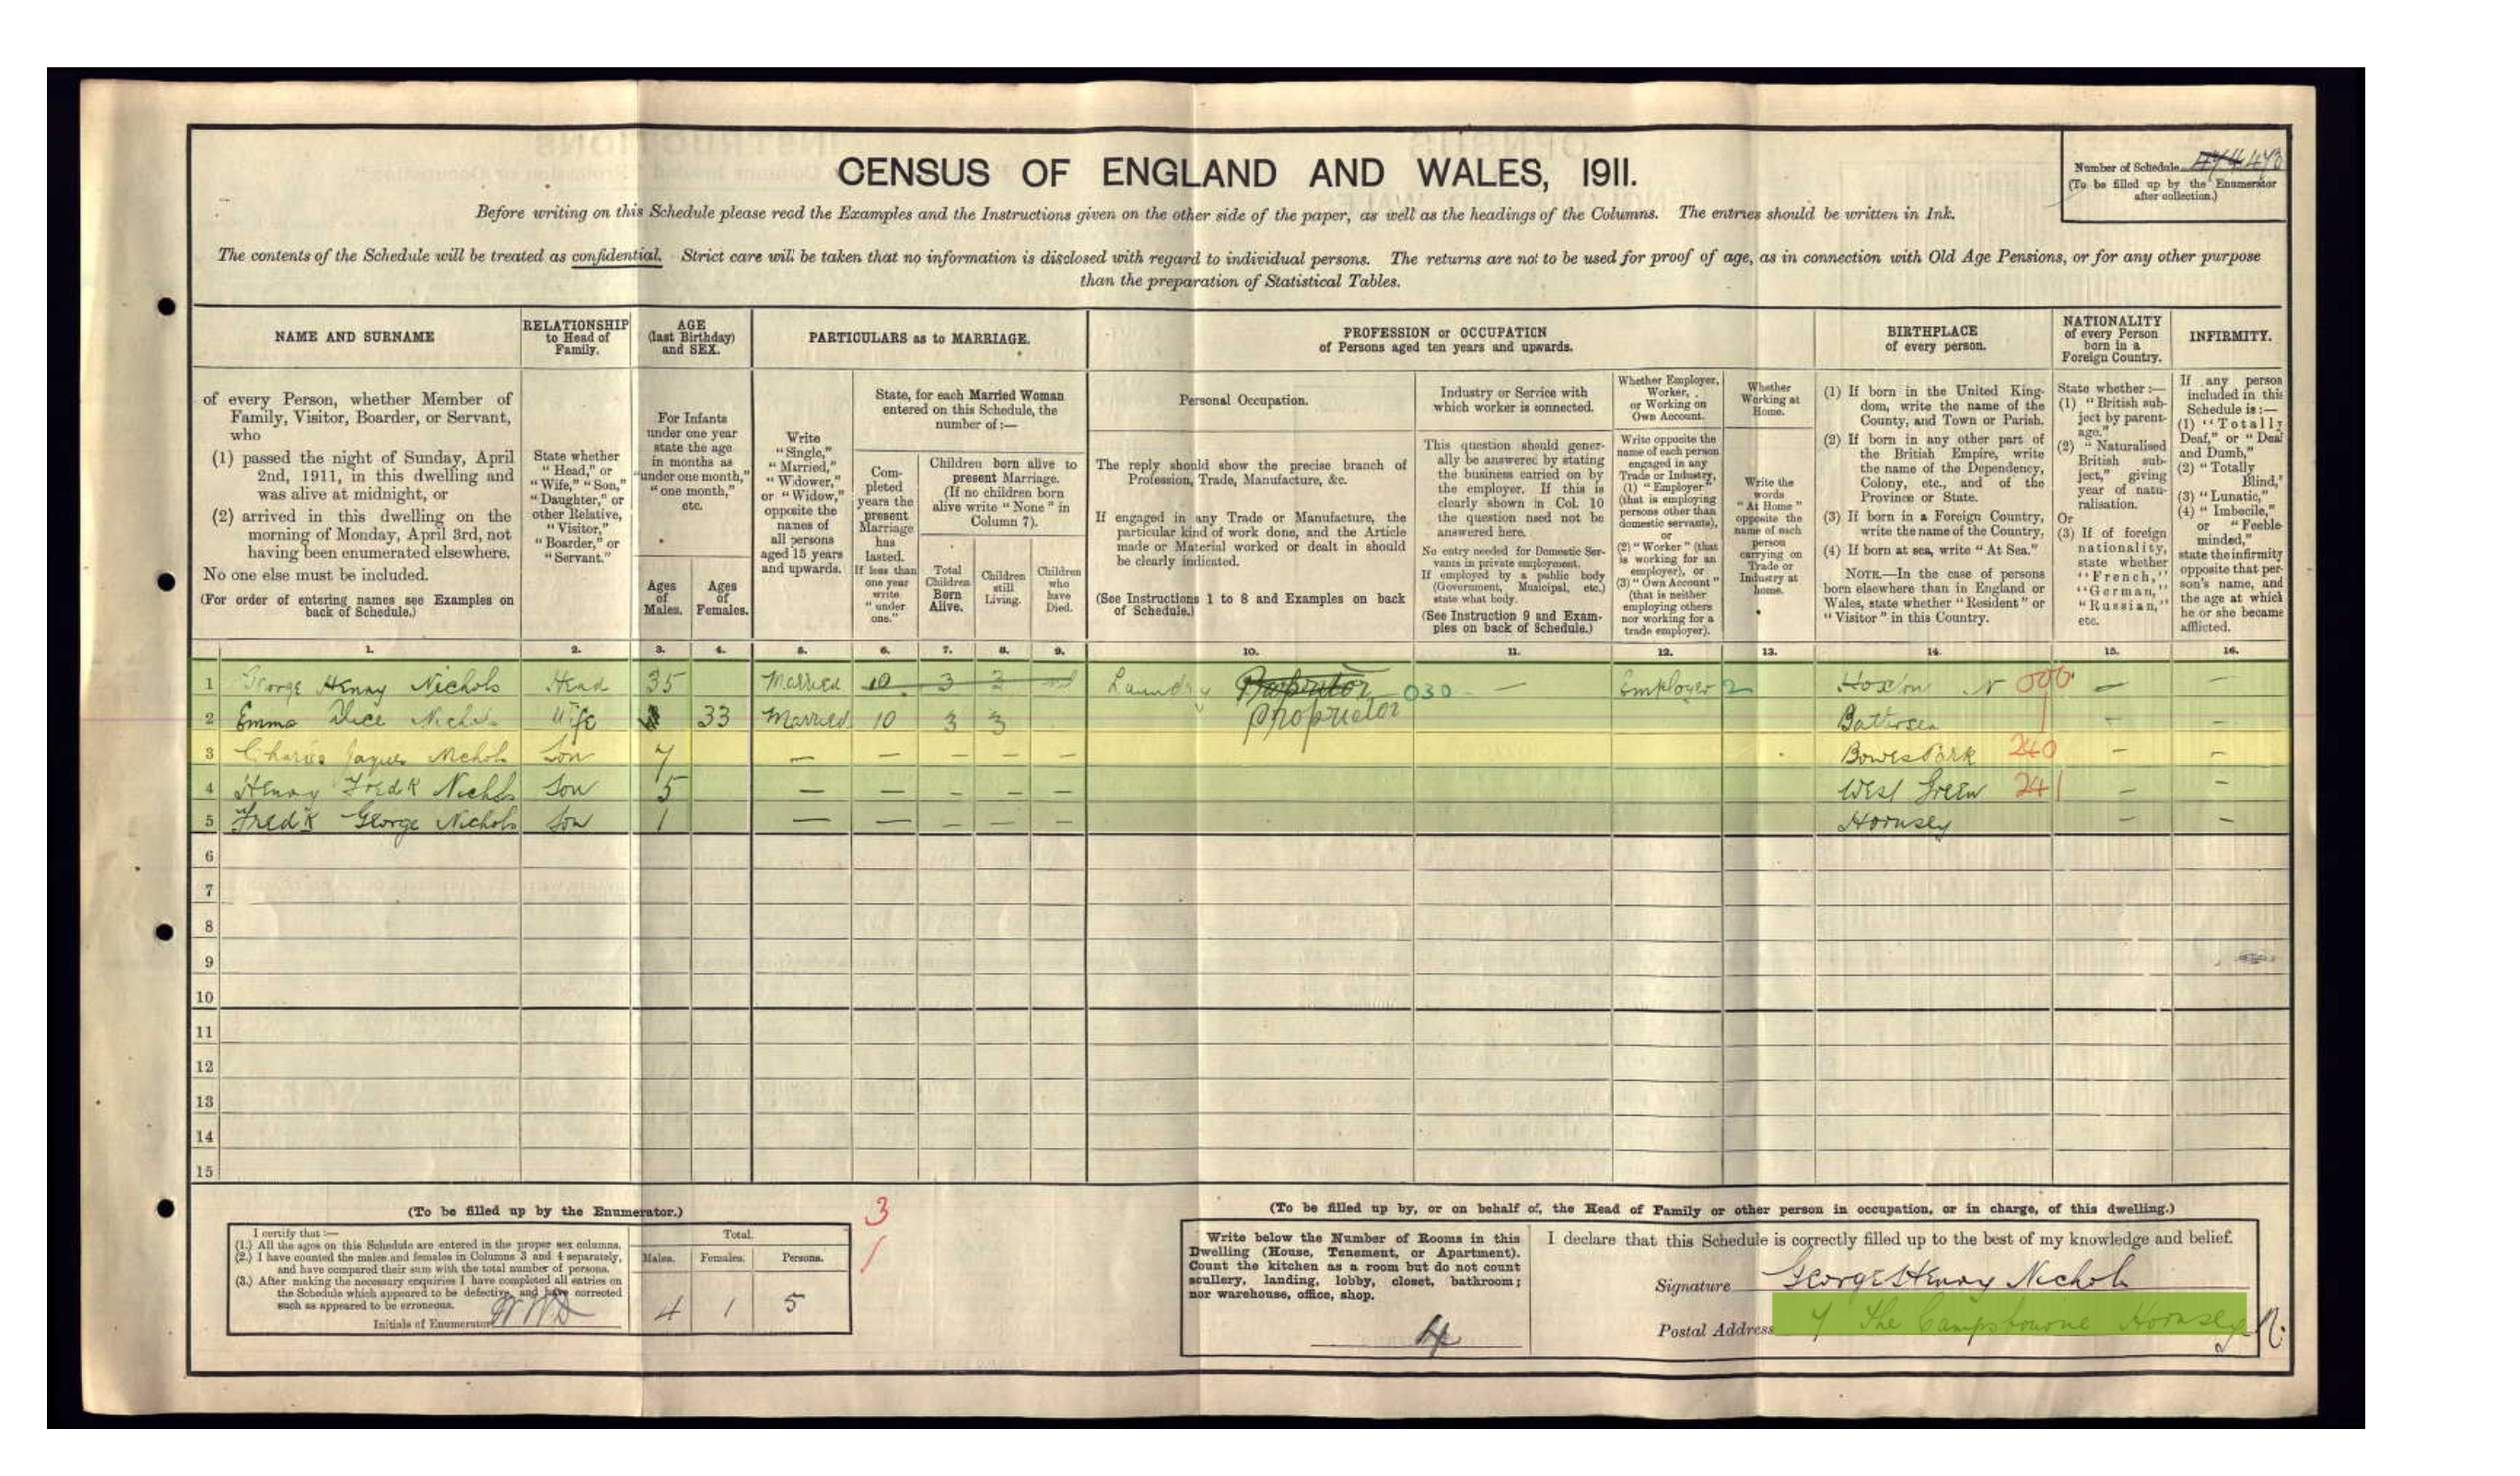 CENSUS OF ENGLAND AND WALES, 1911.
Number of Schedule 473
(To be filled up by the Enumerator after collection.)
Before writing on this Schedule please read the Examples and the Instructions given on the other side of the paper, as well as the headings of the Columns. The entries should be written in Ink.
The contents of the Schedule will be treated as confidential. Strict care will be taken that no information is disclosed with regard to individual persons. The returns are not to be used for proof of age, as in connection with Old Age Pensions, or for any other purpose
than the preparation of Statistical Tables.
NAME AND SURNAME
RELATIONSHIP
to Head of
Family.
AGE
(last Birthday)
and SEX.
PARTICULARS as to MARRIAGE.
PROFESSION or OCCUPATION
of Persons aged ten years and upwards.
BIRTHPLACE
of every person.
NATIONALITY
of every Person
born in a
Foreign Country.
INFIRMITY.
of every Person, whether Member of
Family, Visitor, Boarder, or Servant,
who
(1) passed the night of Sunday, April
2nd, 1911, in this dwelling and
was alive at midnight, or
(2) arrived in this dwelling on the
morning of Monday, April 3rd, not
having been enumerated elsewhere.
No one else must be included.
(For order of entering names see Examples on
back of Schedule.)
State whether
"Head," or
"Wife," "Son,"
"Daughter," or
other Relative,
"Visitor,"
"Boarder," or
"Servant."
For Infants
under one year
state the age
in months as
"under one month,"
"one month,"
etc.
Ages
of
Males.
Ages
of
Females.
Write
"Single,"
"Married,"
"Widower,"
or "Widow,"
opposite the
names of
all persons
aged 15 years
and upwards.
State, for each Married Woman
entered on this Schedule, the
number of:—
Completed
years the
present
Marriage
has
lasted.
If less than
one year
write
"under
one."
Children born alive to
present Marriage.
(If no children born
alive write "None" in
Column 7).
Total
Children
Born
Alive.
Children
still
Living.
Children
who
have
Died.
Personal Occupation.
The reply should show the precise branch of
Profession, Trade, Manufacture, &c.
If engaged in any Trade or Manufacture, the
particular kind of work done, and the Article
made or Material worked or dealt in should
be clearly indicated.
(See Instructions 1 to 8 and Examples on back
of Schedule.)
Industry or Service with
which worker is connected.
This question should gener-
ally be answered by stating
the business carried on by
the employer. If this is
clearly shown in Col. 10
the question need not be
answered here.
No entry needed for Domestic Ser-
vants in private employment.
If employed by a public body
(Government, Municipal, etc.)
state what body.
(See Instruction 9 and Exam-
ples on back of Schedule.)
Whether Employer,
Worker,
or Working on
Own Account.
Write opposite the
name of each person
engaged in any
Trade or Industry,
(1) "Employer"
(that is employing
persons other than
domestic servants),
or
(2) "Worker" (that
is working for an
employer), or
(3) "Own Account"
(that is neither
employing others
nor working for a
trade employer).
Whether
Working at
Home.
Write the
words
"At Home"
opposite the
name of each
person
carrying on
Trade or
Industry at
home.
(1) If born in the United King-
dom, write the name of the
County, and Town or Parish.
(2) If born in any other part of
the British Empire, write
the name of the Dependency,
Colony, etc., and of the
Province or State.
(3) If born in a Foreign Country,
write the name of the Country,
(4) If born at sea, write "At Sea."
NOTE.—In the case of persons
born elsewhere than in England or
Wales, state whether "Resident" or
"Visitor" in this Country.
State whether:—
(1) "British sub-
ject by parent-
age."
(2) "Naturalised
British sub-
ject," giving
year of natu-
ralisation.
Or
(3) If of foreign
nationality,
state whether
"French,"
"German,"
"Russian,"
etc.
If any person
included in this
Schedule is:—
(1) "Totally
Deaf," or "Deaf
and Dumb,"
(2) "Totally
Blind,"
(3) "Lunatic,"
(4) "Imbecile,"
or "Feeble-
minded,"
state the infirmity
opposite that per-
son's name, and
the age at which
he or she became
afflicted.
1. 2. 3. 4. 5. 6. 7. 8. 9. 10. 11. 12. 13. 14. 15. 16.
1 George Henry Nichols Head 35 Married 10 3 3 Laundry Proprietor 030 — Employer 2 Hoxton N 000 — —
2 Emma Alice Nichols Wife 33 Married 10 3 3 Battersea — —
3 Charles Nichols Son 7 — — — — — Bowes Park 240 — —
4 Henry Fredk Nichols Son 5 — — — — — West Green 241 — —
5 Fredk George Nichols Son 1 — — — — — Hornsey — —
6
7
8
9
10
11
12
13
14
15
(To be filled up by the Enumerator.)
I certify that:—
(1.) All the ages on this Schedule are entered in the proper sex columns.
(2.) I have counted the males and females in Columns 3 and 4 separately,
and have compared their sum with the total number of persons.
(3.) After making the necessary enquiries I have completed all entries on
the Schedule which appeared to be defective, and have corrected
such as appeared to be erroneous.
Initials of Enumerator
Total.
Males. Females. Persons.
4 1 5
3
1
(To be filled up by, or on behalf of, the Head of Family or other person in occupation, or in charge, of this dwelling.)
Write below the Number of Rooms in this
Dwelling (House, Tenement, or Apartment).
Count the kitchen as a room but do not count
scullery, landing, lobby, closet, bathroom;
nor warehouse, office, shop.
4
I declare that this Schedule is correctly filled up to the best of my knowledge and belief.
Signature George Henry Nichols
Postal Address 7 The Campsbourne Hornsey N.